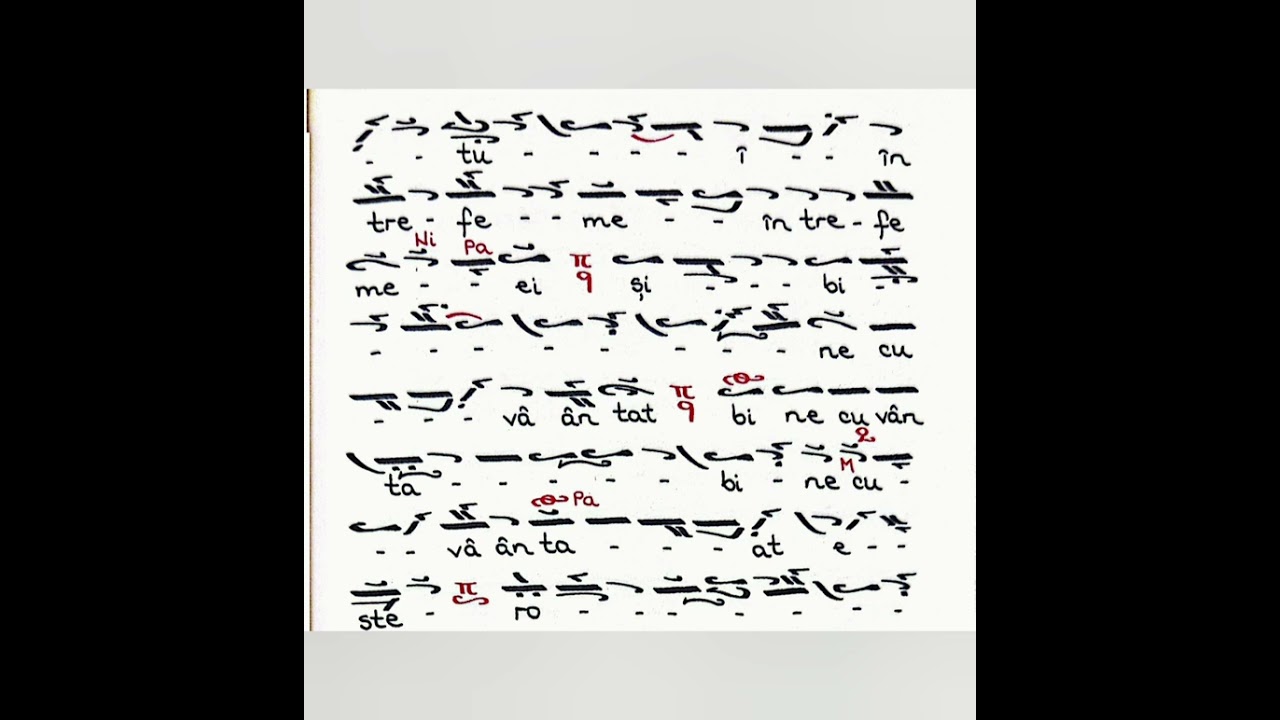 - - tü - - - - î - - în
tre - fe - - me - - în tre - fe
Ni Pa
me - - ei π q și - - - bi -
- - - - - - - - ne cu
- - - vâ ân tat π q bi ne cu vân
ta - - - - - bi - ne cu -
M
Pa
- - vâ ân ta - - - at e - -
ste - π ro - - - - - - -